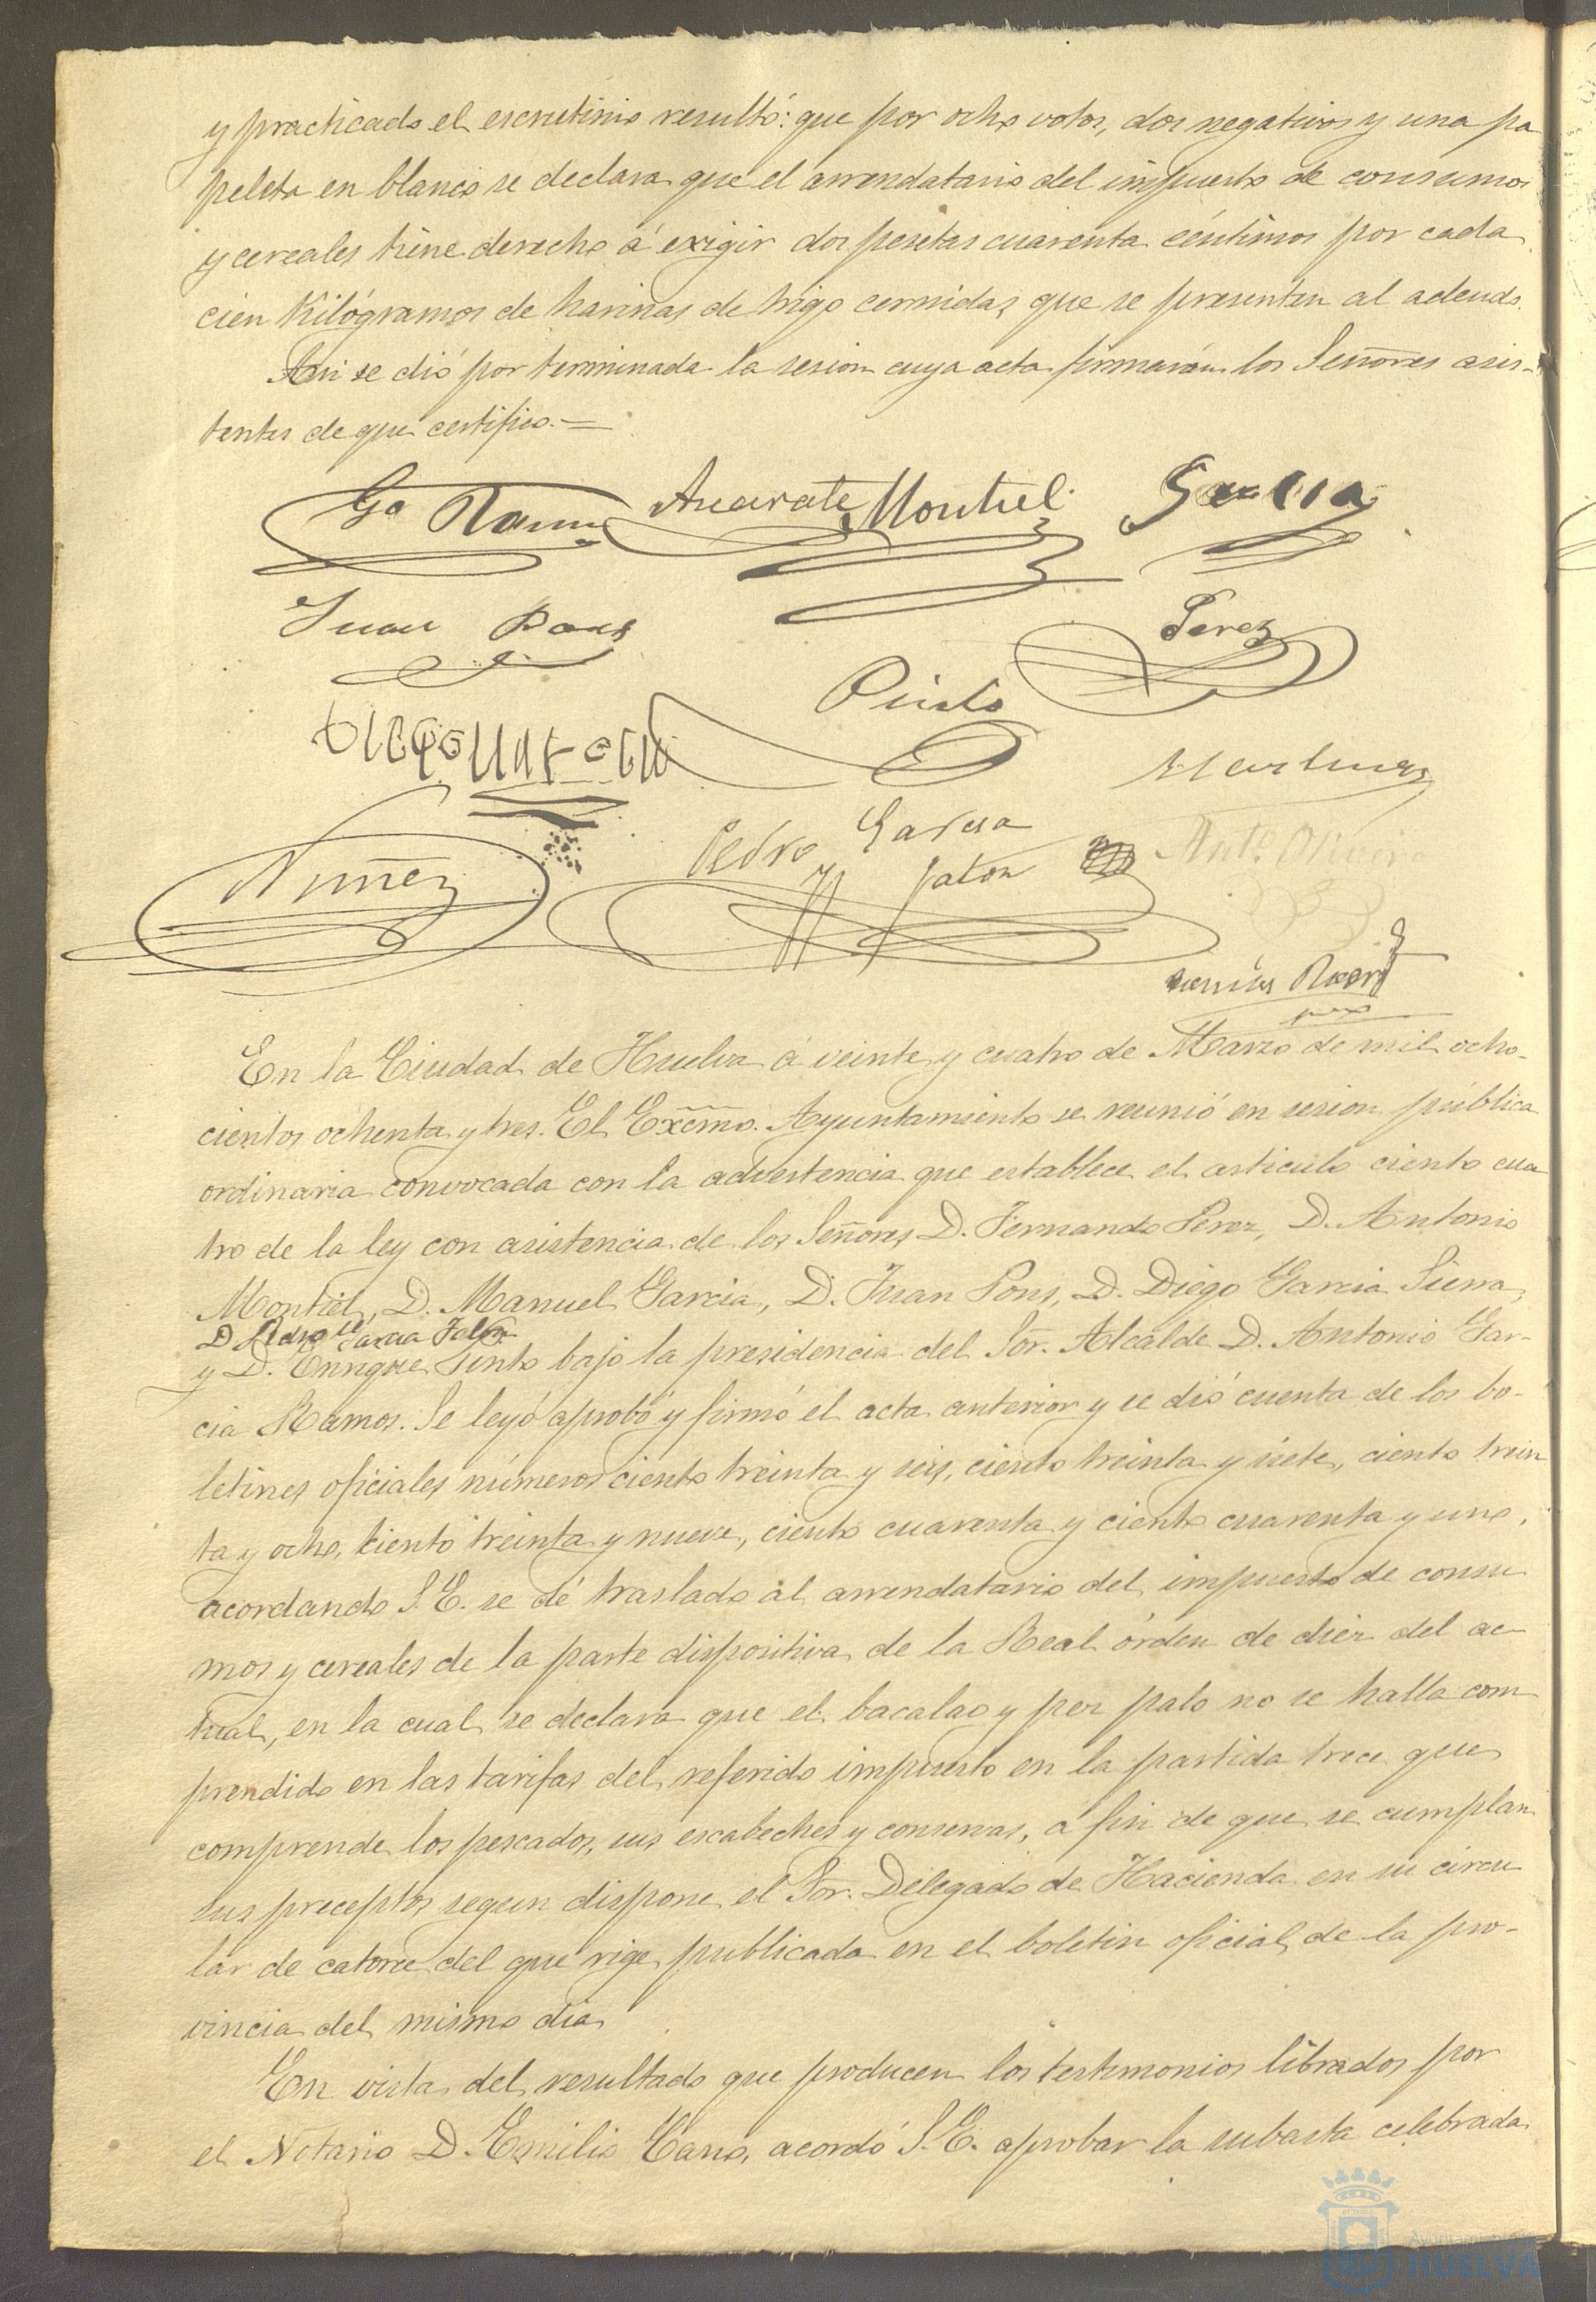 y practicado el escrutinio resultó: que por ocho votos, dos negativos y una pa
peleta en blanco se declara que el arrendatario del impuesto de consumos
y cereales tiene derecho á exigir dos pesetas cuarenta céntimos por cada
cien Kilógramos de harinas de trigo cernidas que se presenten al adeudo.
Asi se dió por terminada la sesion cuya acta firmarán los Señores asis-
tentes de que certifico.=
Ga Ramos Montiel Garcia
Juan Pons Perez
Pinto
Martinez
Nuñez Pedro Garcia Jalon
En la Ciudad de Huelva á veinte y cuatro de Marzo de mil ocho-
cientos ochenta y tres. El Excmo. Ayuntamiento se reunió en sesion pública
ordinaria convocada con la advertencia que establece el articulo ciento cua
tro de la ley con asistencia de los Señores D. Fernando Perez, D. Antonio
Montiel, D. Manuel Garcia, D. Juan Pons, D. Diego Garcia Sierra,
D Pedro Garcia Jalon
y D. Enrique Pinto bajo la presidencia del Sor. Alcalde D. Antonio Gar-
cia Ramos. Se leyó aprobó y firmó el acta anterior y se dió cuenta de los bo-
letines oficiales números ciento treinta y seis, ciento treinta y siete, ciento trein
ta y ocho, ciento treinta y nueve, ciento cuarenta y ciento cuarenta y uno,
acordando S.E. se dé traslado al arrendatario del impuesto de consu
mos y cereales de la parte dispositiva de la Real órden de diez del ac
tual, en la cual se declara que el bacalao y pez palo no se halla com
prendido en las tarifas del referido impuesto en la partida trece que
comprende los pescados, sus escabeches y conservas, á fin de que se cumplan
sus preceptos segun dispone el Sor. Delegado de Hacienda en su circu
lar de catorce del que rige publicada en el boletin oficial de la pro-
vincia del mismo dia
En vista del resultado que producen los testimonios librados por
el Notario D. Emilio Cano, acordó S.E. aprobar la subasta celebrada
Ayuntamiento
HUELVA